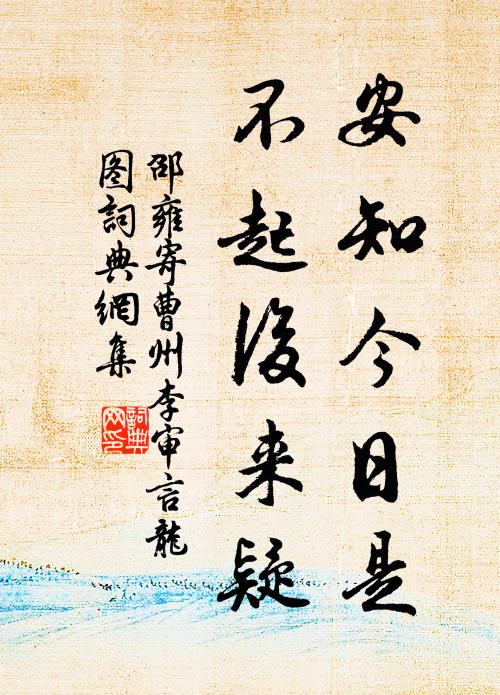 安知今日是
不起後来疑
邵雍寄曹州李审言龍
图詞典網集
詞典
网印